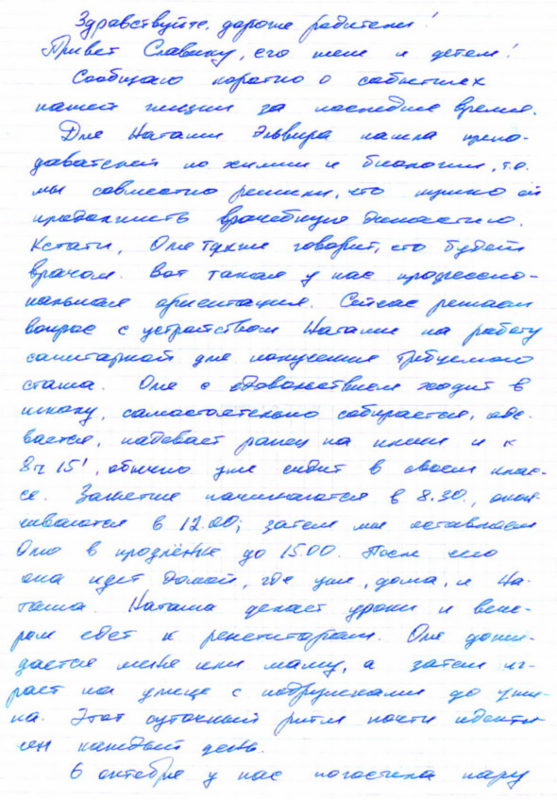 Здравствуйте, дорогие родители!
Привет Славику, его жене и детям!
Сообщаю коротко о событиях
нашей жизни за последнее время.
Для Наташи Эльвира нашла препо-
давателей по химии и биологии, т.о.
мы совместно решили, что нужно ей
продолжить врачебную династию.
Кстати, Оля также говорит, что будет
врачом. Вот такая у нас профессио-
нальная ориентация. Сейчас решаем
вопрос с устройством Наташи на работу
санитаркой для получения требуемого
стажа. Оля с удовольствием ходит в
школу, самостоятельно собирается, оде-
вается, надевает ранец на плечи и к
8ч 15', обычно уже сидит в своем клас-
се. Занятие начинаются в 8.30., окан-
чиваются в 12.00; затем мы оставляем
Олю в продлёнке до 15.00. После чего
она идет домой, где уже, дома, и На-
таша. Наташа делает уроки и вече-
ром едет к репетиторам. Оля дожи-
дается меня или маму, а затем иг-
рает на улице с подружками до ужи-
на. Этот суточный ритм почти иденти-
чен каждый день.
6 октября у нас погостила пару